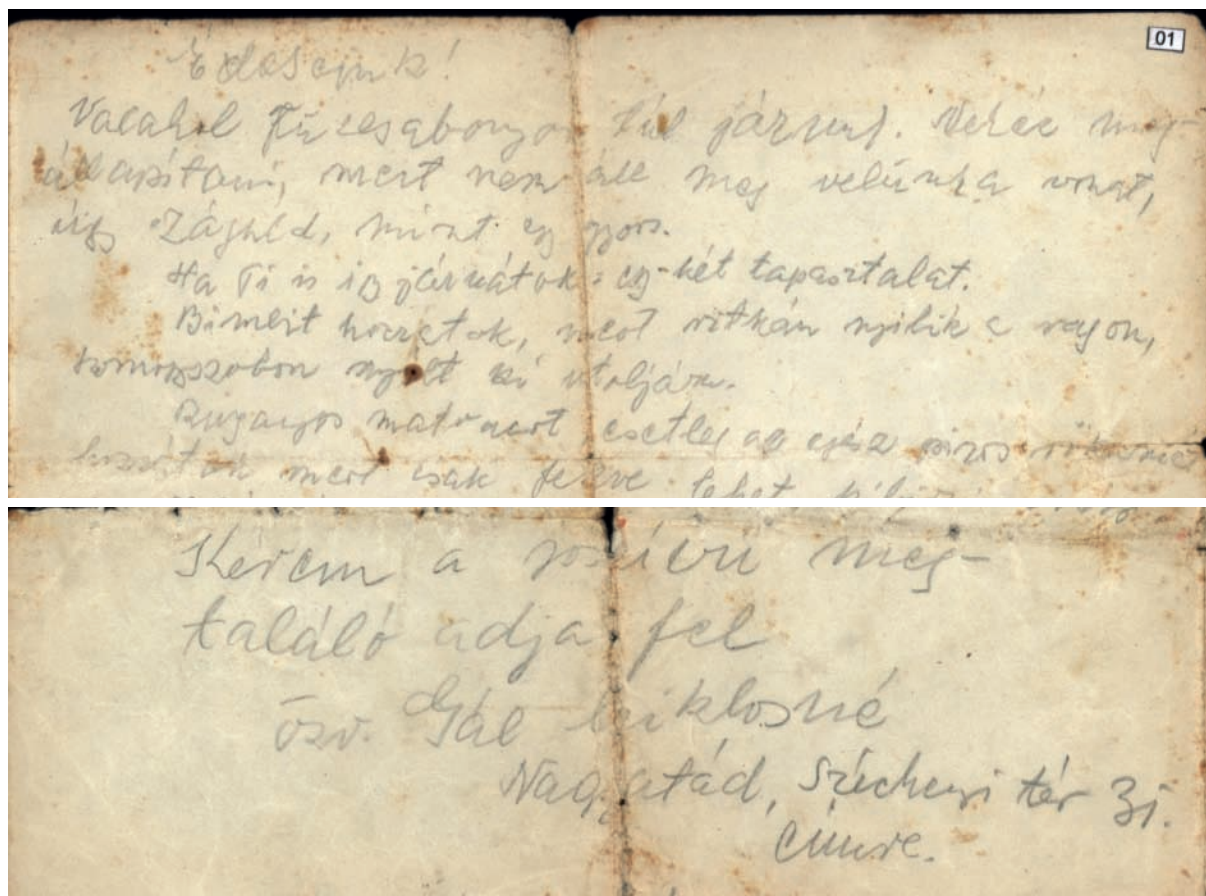 01
Édeseink!
Valahol Füzesabonyon túl járunk. Nehéz meg-
állapítani, mert nem áll meg velünk a vonat,
úgy száguld, mint egy gyors.
Ha Ti is így járnátok: egy-két tapasztalat.
hozzatok, mert ritkán nyílik a vagon,
nyílt ki utoljára.
Ruganyos matracot, esetleg az egész piros
mert csak fekve lehet
Kérem a jószívű meg-
találó adja fel
özv. Gál Miklósné
Nagyatád, Széchenyi tér
címre.